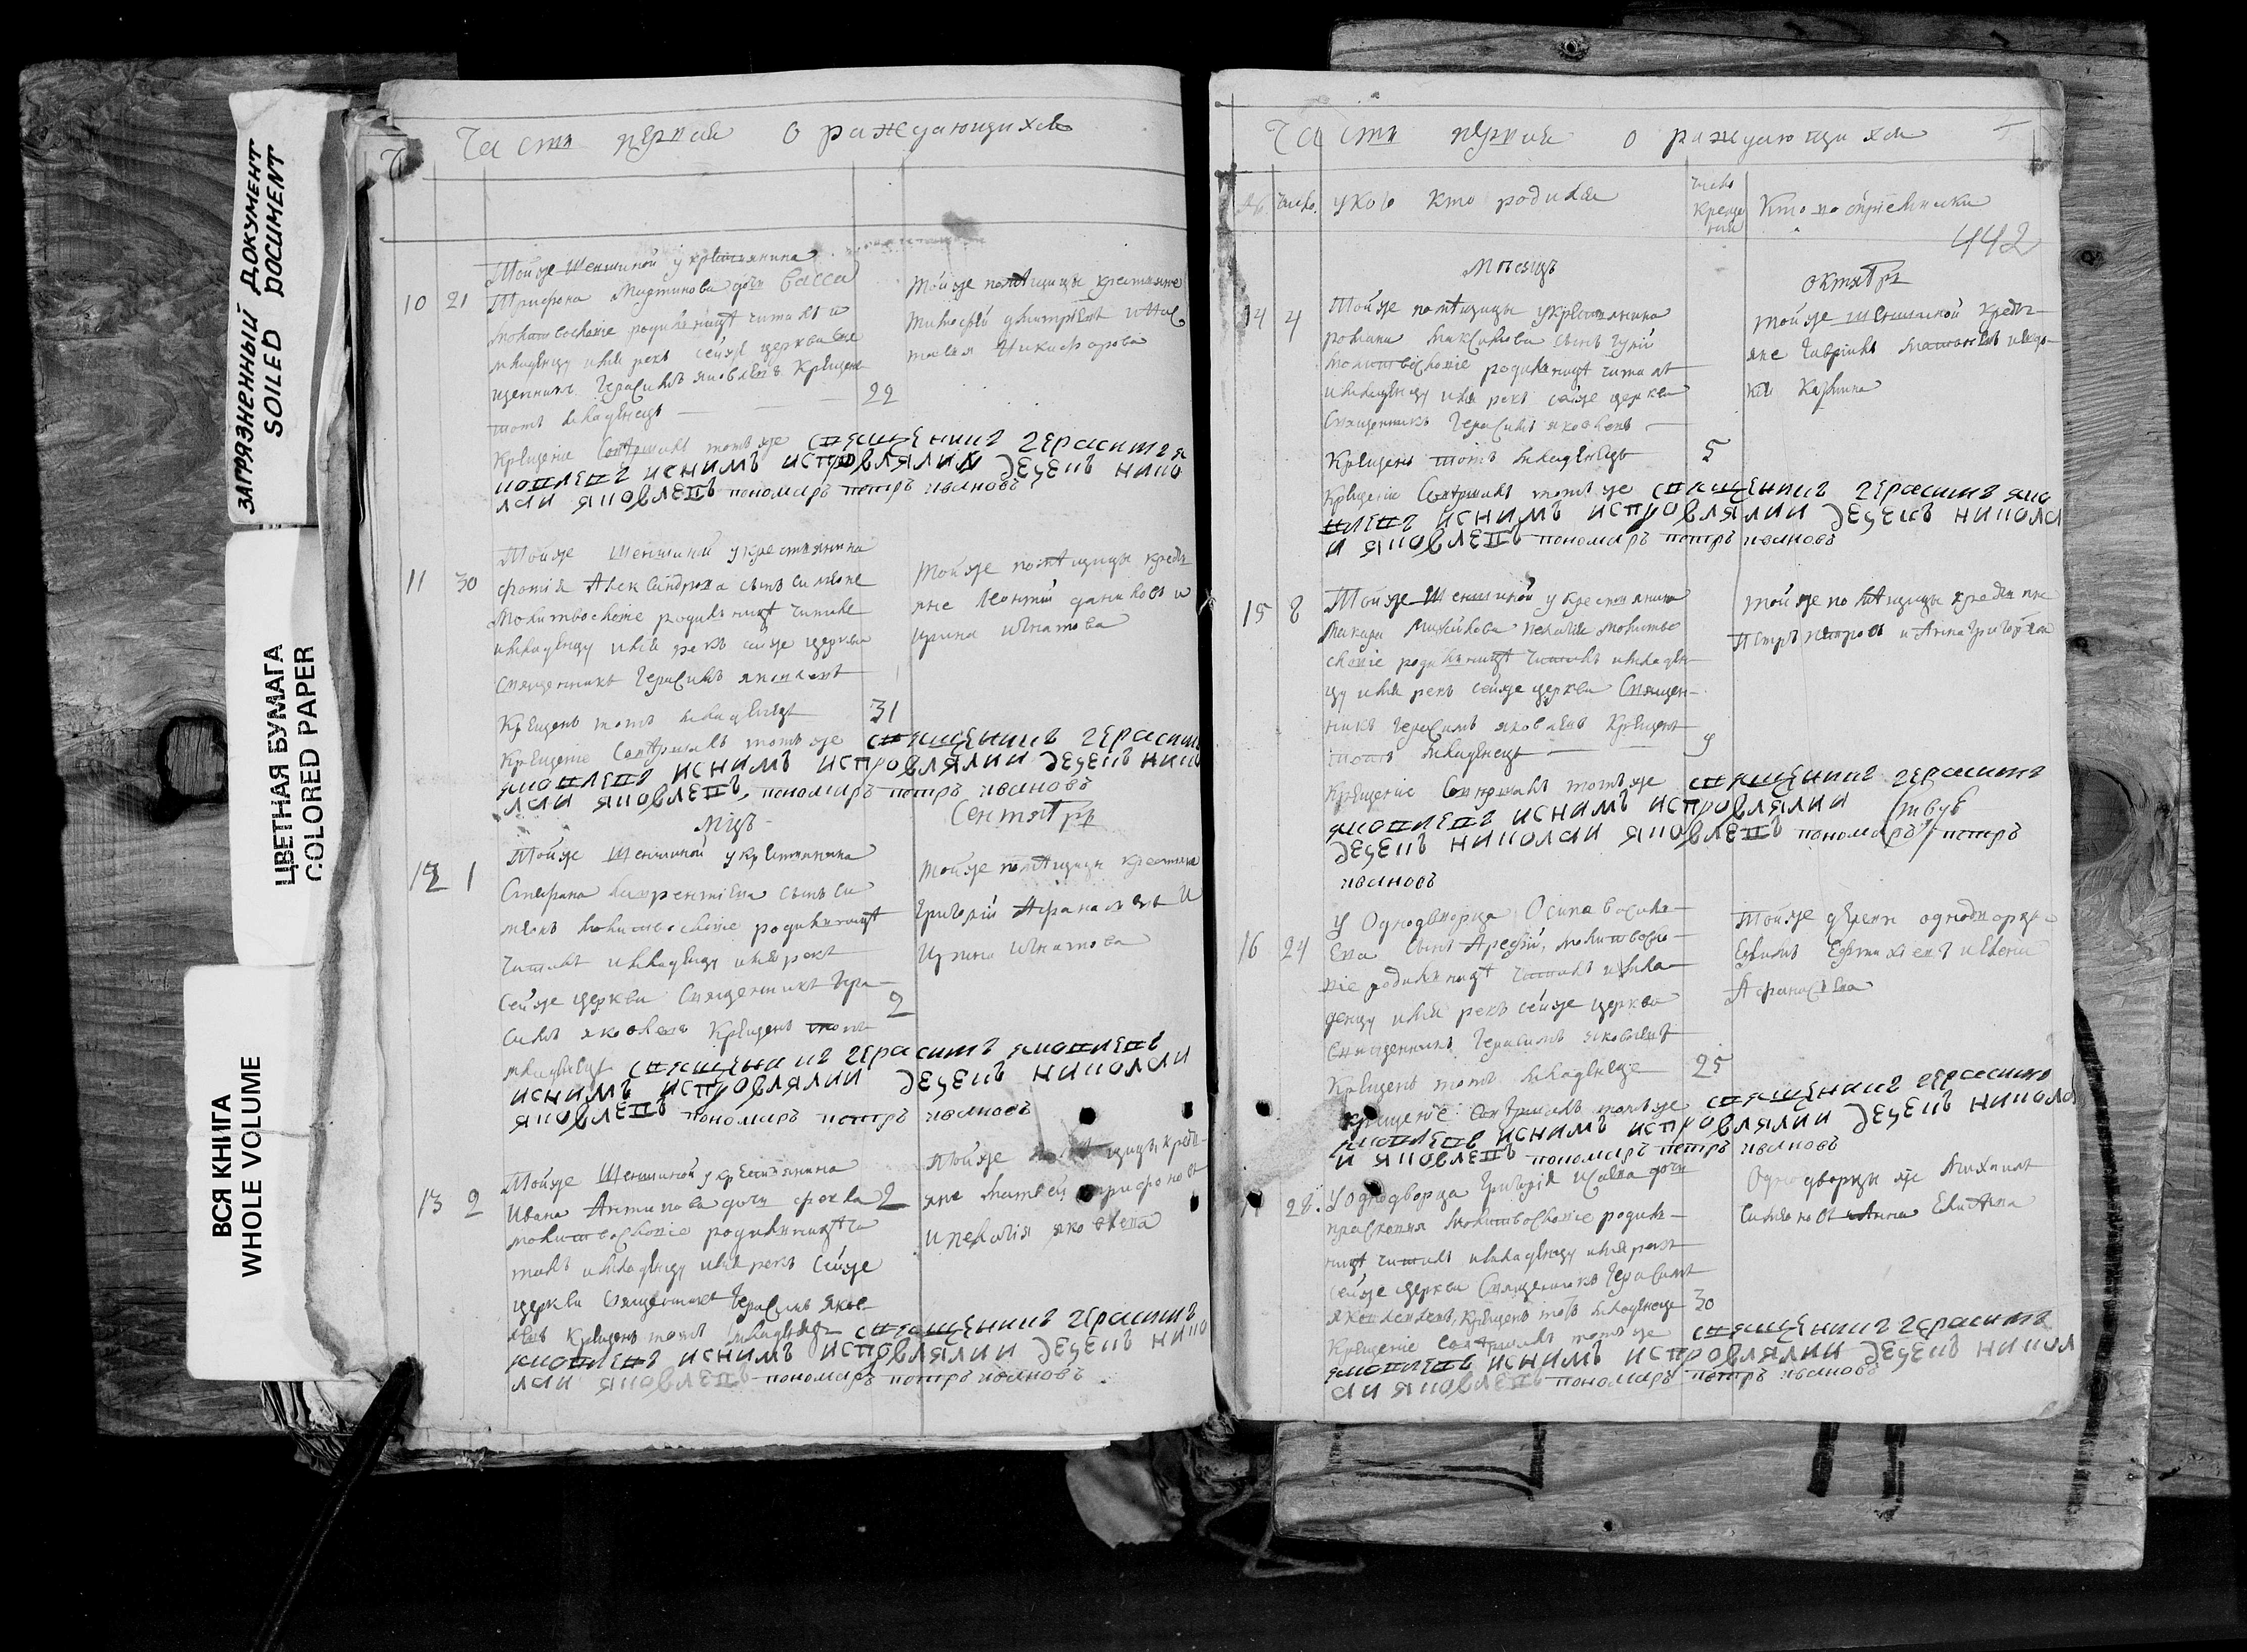 ЗАГРЯЗНЕННЫЙ ДОКУМЕНТ
SOILED DOCUMENT
ЦВЕТНАЯ БУМАГА
COLORED PAPER
ВСЯ КНИГА
WHOLE VOLUME
Часть первая о раждающихся
Тойже Шеншиной укрестьянина
10 21 Трифона Мартинова дочь Васса
молитвословіе родильницѣ читалъ и
младенцу имя рекъ сейже церкви свя
щенникъ Герасимъ яковлевъ Крещенъ
тотъ младенецъ 22
тойже помѣщицы крестьяне
Тимофѣй дмитріевъ
Никифорова
Крещеніе Совершалъ тотъже священникъ герасимъ я
ковлевъ иснимъ исправляли дечекъ нико
лаи яковлевъ пономаръ петръ ивановъ
Тойже Шеншиной укрестьянина
11 30 фотія Александрова сынъ симеонъ
Молитвословіе родильницѣ читалъ
имладенцу имя рекъ сейже церкви
Священникъ Герасимъ яковлевъ
Крещенъ тотъ младенецъ 31
тойже помѣщицы кресть
яне Леонтій даниловъ и
ирина игнатова
Крещеніе Совершалъ тотъже священникъ герасимъ
яковлевъ иснимъ исправляли дечекъ нико
лаи яковлевъ пономаръ петръ ивановъ
Мцъ Сентябрь
Тойже Шеншиной укрестьянина
12 1 Стефана Лаврентіева сынъ си
меонъ молитвословіе родильницѣ
читалъ имладенцу имя рекъ
сейже церкви Священникъ Гера
симъ яковлевъ Крещенъ тотъ 2
тойже помѣщицы крестьяне
Григорій Афанасьевъ и
Ирина Игнатова
младенецъ священникъ герасимъ яковлевъ
иснимъ исправляли дечекъ николаи
яковлевъ пономаръ петръ ивановъ
Тойже Шеншиной укрестьянина
13 2 Ивана Антипова дочь фекла 2
молитвословіе родильницѣ чи
талъ имладенцу имя рекъ сейже
церкви Священникъ Герасимъ яков
левъ Крещенъ тотъ младенецъ священникъ герасимъ
тойже помѣщицы кресть
яне Матвей трифоновъ
и пелагія яковлева
яковлевъ иснимъ исправляли дечекъ нико
лаи яковлевъ пономаръ петръ ивановъ
Часть первая о раждающихся
№ число укого кто родился число крещенія Кто воспріемники
442
Мѣсяцъ октябрь
14 4 Тойже помѣщицы укрестьянина
романа Максимова сынъ гурій
Молитвословіе родильницѣ читалъ
имладенцу имя рекъ сейже церкви
Священникъ Герасимъ яковлевъ
Крещенъ тотъ младенецъ 5
тойже Шеншиной кресть
яне Гавріилъ
Крещеніе Совершалъ тотъже священникъ герасимъ яко
влевъ иснимъ исправляли дечекъ никола
и яковлевъ пономаръ петръ ивановъ
15 8 Тойже Шеншиной укрестьянина
Макара пелагія молитво
словіе родильницѣ читалъ имладен
цу имя рекъ сейже церкви Священ
никъ Герасимъ яковлевъ Крещенъ
тотъ младенецъ 9
тойже помѣщицы крестьяне
Петръ петровъ и Анна Григорьева
Крещеніе Совершалъ тотъже священникъ герасимъ
яковлевъ иснимъ исправляли
дечекъ николаи яковлевъ пономаръ петръ
ивановъ
У Однодворца Осипа Василь
16 24 ева сынъ Арефій, молитвосло
віе родильницѣ читалъ имла
денцу имя рекъ сейже церкви
Священникъ Герасимъ яковлевъ
Крещенъ тотъ младенецъ 25
Тойже дѣревни однодворцы
Афанасьева
Крещеніе Совершалъ тотъже священникъ герасимъ
яковлевъ иснимъ исправляли дечекъ никола
и яковлевъ пономаръ петръ ивановъ
28. Уоднодворца Григорія Исаева дочь
прасковія Молитвословіе родиль
ницѣ читалъ имладенцу имя рекъ
сейже церкви Священникъ Герасимъ
яковлевъ, Крещенъ тотъ младенецъ 30
Однодворцы же Михаилъ
Крещеніе Совершалъ тотъже священникъ герасимъ
яковлевъ иснимъ исправляли дечекъ никол
аи яковлевъ пономаръ петръ ивановъ